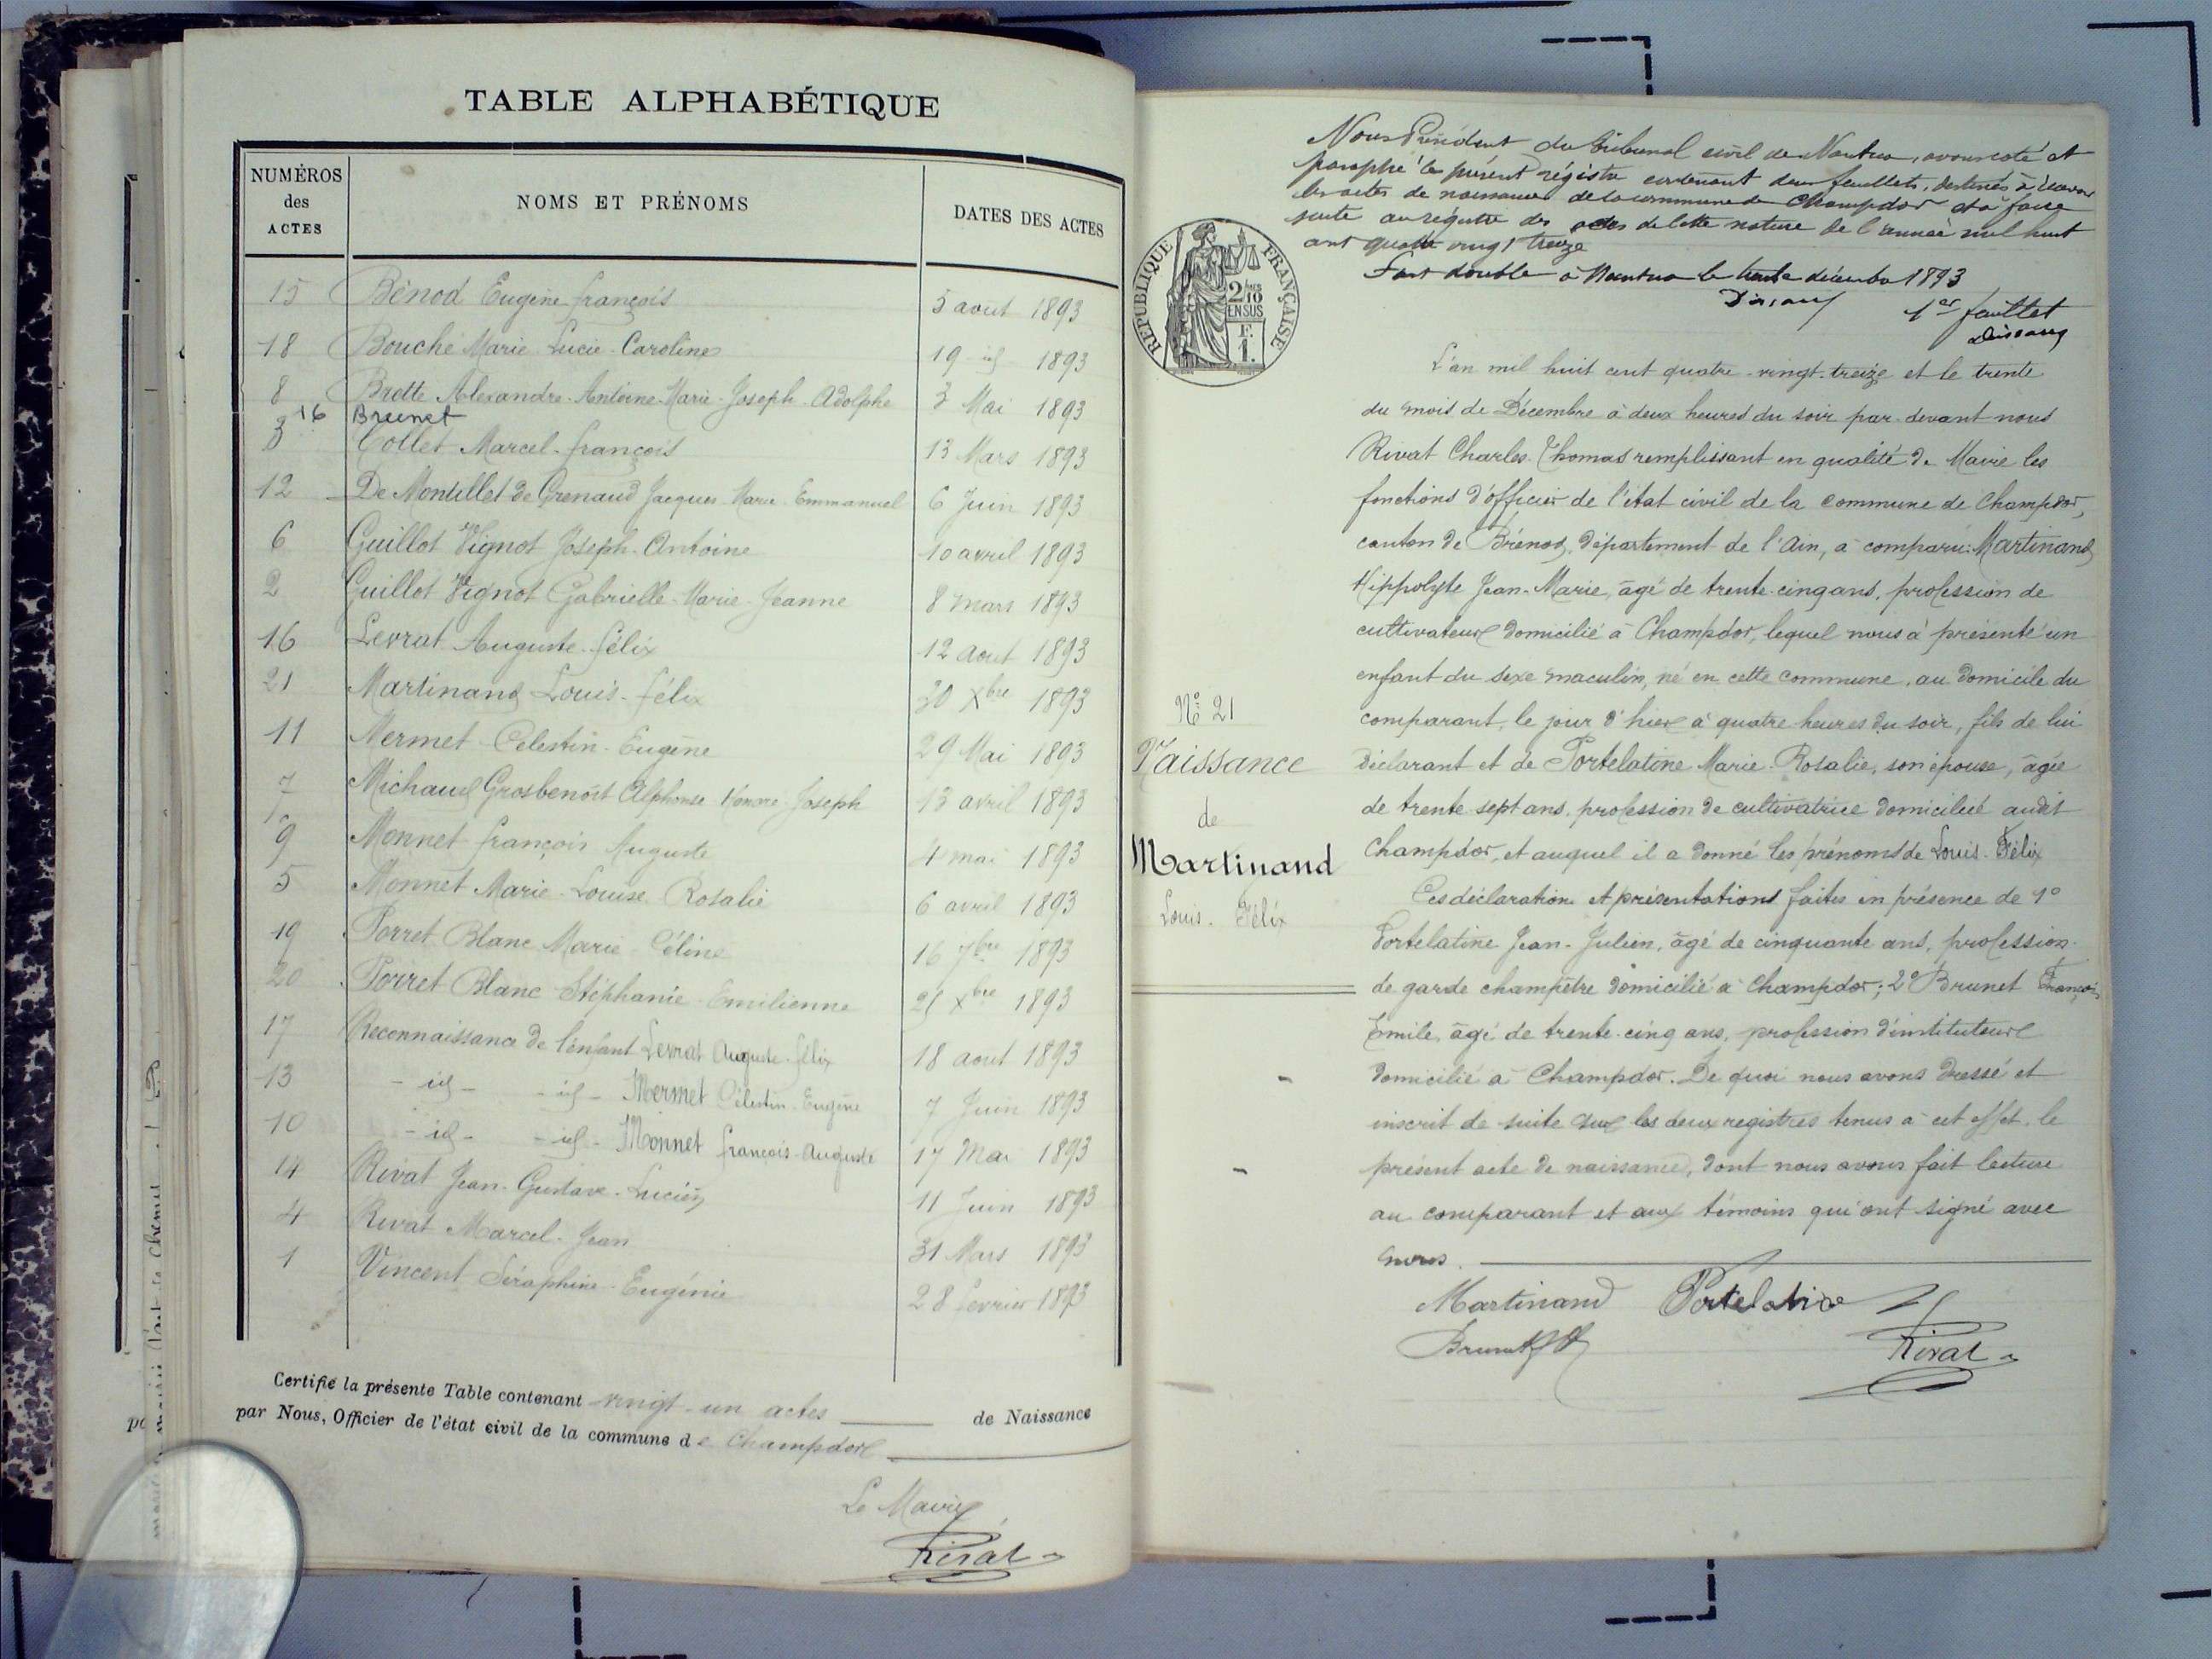 TABLE ALPHABÉTIQUE
NUMÉROS des ACTES NOMS ET PRÉNOMS DATES DES ACTES
15 Bénod Eugène françois 5 aout 1893
18 Bouché Marie Lucie Caroline 19 id 1893
8 Brotte Alexandre Antoine Marie Joseph Adolphe 3 Mai 1893
16 Brunet
3 Collet Marcel françois 13 Mars 1893
12 De Montillet de Grenaud Jacques Marie Emmanuel 6 Juin 1893
6 Guillot Vignot Joseph Antoine 10 avril 1893
2 Guillot Vignot Gabrielle Marie Jeanne 8 mars 1893
16 Levrat Auguste félix 12 Aout 1893
21 Martinand Louis félix 30 Xbre 1893
11 Mermet Celestin Eugène 29 Mai 1893
7 Michaud Grosbenoit Alphonse Honoré Joseph 13 avril 1893
9 Monnet françois Auguste 4 mai 1893
5 Monnet Marie Louise Rosalie 6 avril 1893
19 Porret Blanc Marie Céline 16 7bre 1893
20 Porret Blanc Stéphanie Emilienne 21 Xbre 1893
17 Reconnaissance de l'enfant Levrat Auguste félix 18 aout 1893
13 - id - - id - Mermet Célestin Eugène 7 Juin 1893
10 - id - - id - Monnet françois Auguste 17 Mai 1893
14 Rivat Jean Gustave Lucien 11 Juin 1893
4 Rivat Marcel Jean 31 Mars 1893
1 Vincent Séraphine Eugénie 28 fevrier 1893
Certifié la présente Table contenant vingt-un actes de Naissance
par Nous, Officier de l'état civil de la commune de Champdor
Le Maire
Rivat
Nous Président du tribunal civil de Nantua, avons coté et
paraphé le présent régistre contenant deux feuillets, destinés à recevoir
les actes de naissance de la commune de Champdor et à faire
suite au régistre des actes de cette nature de l'année mil huit
cent quatre vingt treize
Fait double à Nantua le trente décembre 1893
1er feuillet
RÉPUBLIQUE FRANÇAISE
2/10 EN SUS
F. 1.
L'an mil huit cent quatre-vingt-treize et le trente
du mois de Décembre à deux heures du soir par-devant nous
Rivat Charles Thomas remplissant en qualité de Maire les
fonctions d'officier de l'état civil de la commune de Champdor,
canton de Brénod, département de l'Ain, a comparu: Martinand
Hippolyte Jean-Marie, âgé de trente-cinq ans, profession de
cultivateur domicilié à Champdor, lequel nous a présenté un
enfant du sexe masculin, né en cette commune, au domicile du
comparant, le jour d'hier à quatre heures du soir, fils de lui
déclarant et de Portelatine Marie-Rosalie, son épouse, âgée
de trente sept ans, profession de cultivatrice domiciliée audit
Champdor, et auquel il a donné les prénoms de Louis-Félix
Ces déclaration et présentations faites en présence de 1°
Portelatine Jean-Julien, âgé de cinquante ans, profession
de garde champêtre domicilié à Champdor; 2° Brunet François
Emile, âgé de trente-cinq ans, profession d'instituteur
domicilié à Champdor. De quoi nous avons dressé et
inscrit de suite sur les deux registres tenus à cet effet, le
présent acte de naissance, dont nous avons fait lecture
au comparant et aux témoins qui ont signé avec
nous.
N° 21
Naissance
de
Martinand
Louis-Félix
Martinand Portelatine
Brunet Rivat